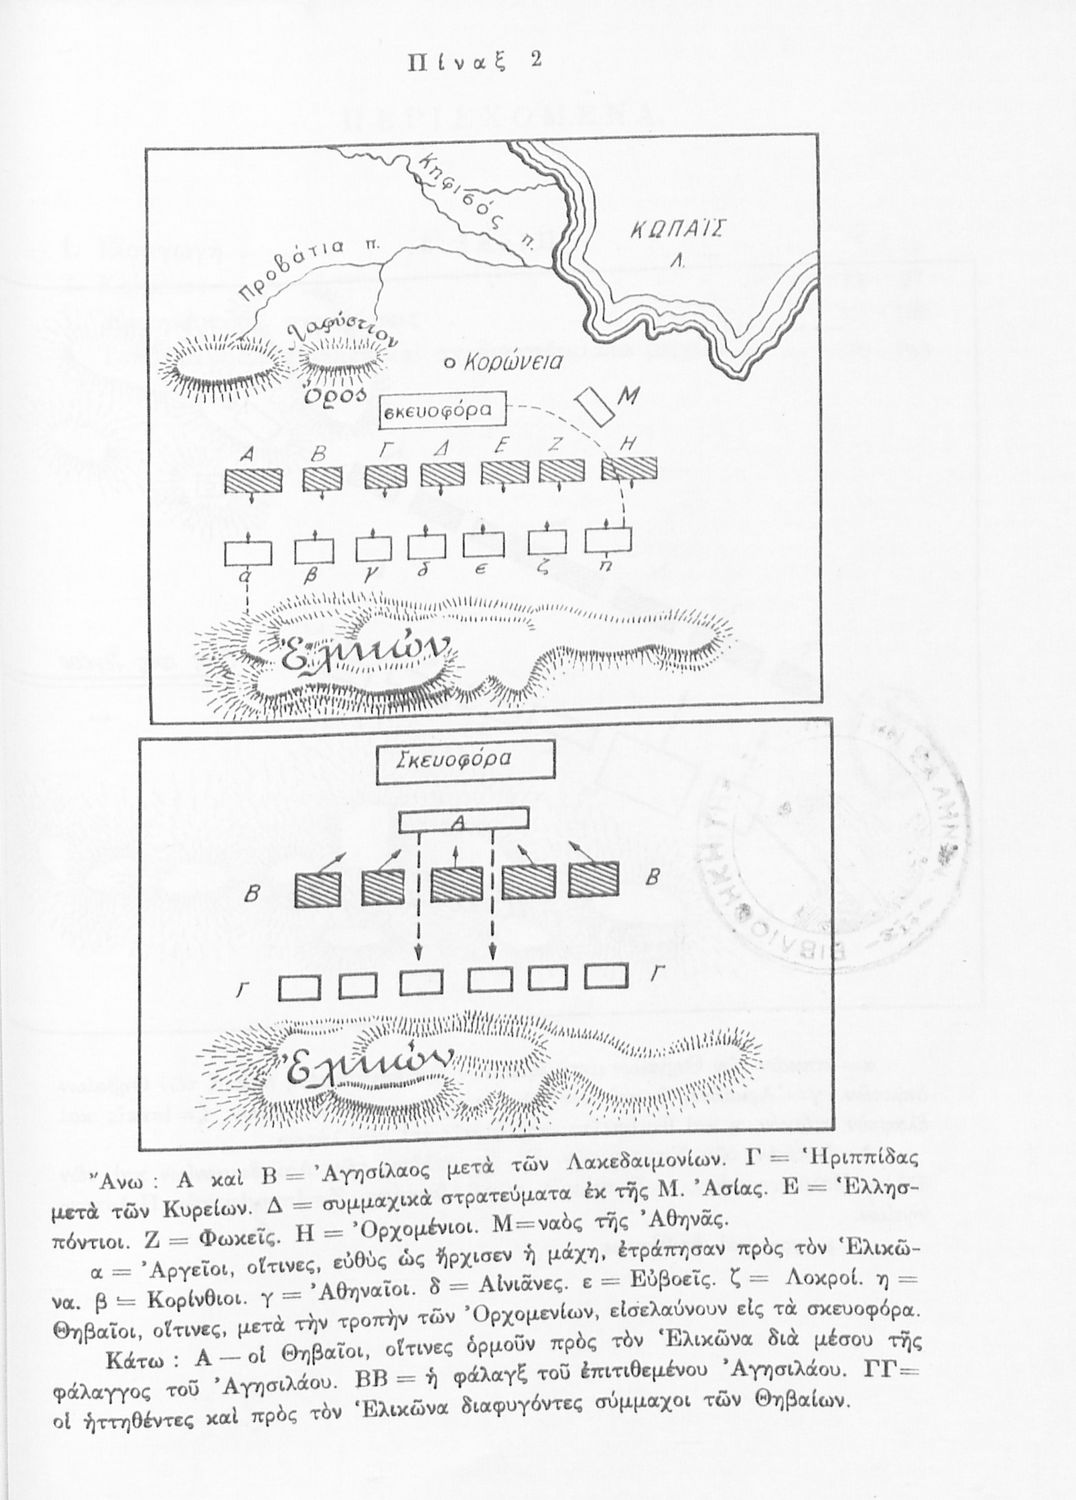 Πίναξ 2
Κηφισός π.
ΚΩΠΑΪΣ
Λ.
Προβάτια π.
Λαφύστιον
Ὄρος
Κορώνεια
σκευοφόρα
Μ
Α Β Γ Δ Ε Ζ Η
α β γ δ ε ζ η
Ἑλικών
Σκευοφόρα
Α
Β Β
Γ Γ
Ἑλικών
Ἄνω : Α καὶ Β = Ἀγησίλαος μετὰ τῶν Λακεδαιμονίων. Γ = Ἡριππίδας
μετὰ τῶν Κυρείων. Δ = συμμαχικὰ στρατεύματα ἐκ τῆς Μ. Ἀσίας. Ε = Ἑλλησ-
πόντιοι. Ζ = Φωκεῖς. Η = Ὀρχομένιοι. Μ=ναὸς τῆς Ἀθηνᾶς.
α = Ἀργεῖοι, οἵτινες, εὐθὺς ὡς ἤρχισεν ἡ μάχη, ἐτράπησαν πρὸς τὸν Ἑλικῶ-
να. β = Κορίνθιοι. γ = Ἀθηναῖοι. δ = Αἰνιᾶνες. ε = Εὐβοεῖς. ζ = Λοκροί. η =
Θηβαῖοι, οἵτινες, μετὰ τὴν τροπὴν τῶν Ὀρχομενίων, εἰσελαύνουν εἰς τὰ σκευοφόρα.
Κάτω : Α — οἱ Θηβαῖοι, οἵτινες ὁρμοῦν πρὸς τὸν Ἑλικῶνα διὰ μέσου τῆς
φάλαγγος τοῦ Ἀγησιλάου. ΒΒ = ἡ φάλαγξ τοῦ ἐπιτιθεμένου Ἀγησιλάου. ΓΓ=
οἱ ἡττηθέντες καὶ πρὸς τὸν Ἑλικῶνα διαφυγόντες σύμμαχοι τῶν Θηβαίων.